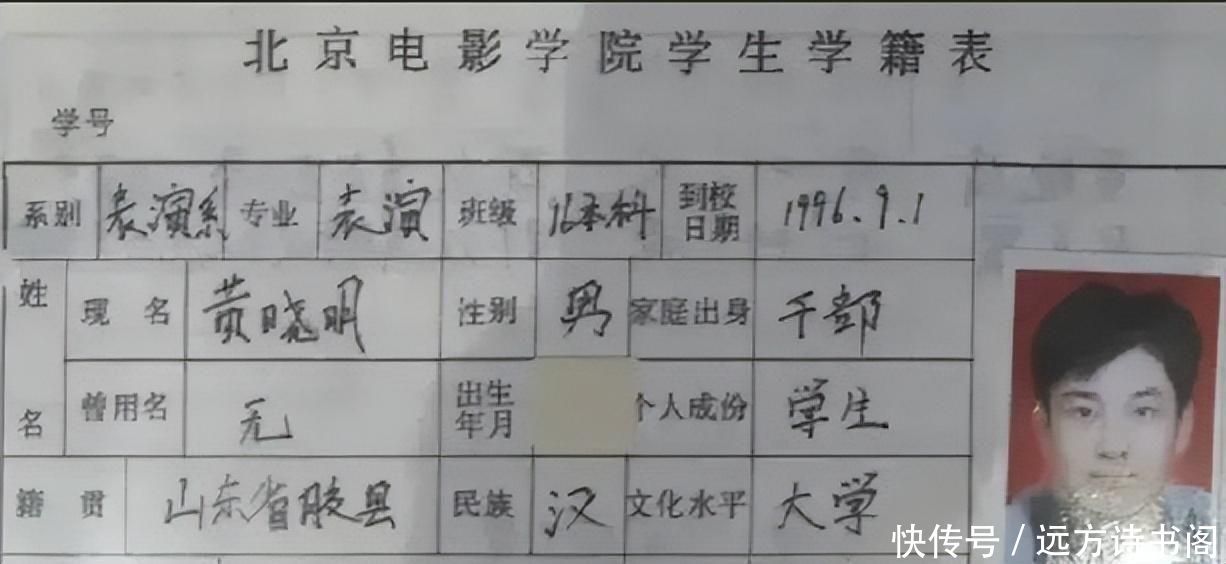 北京电影学院学生学籍表
学号
系别 表演系 专业 表演 班级 96本科 到校日期 1996.9.1
姓名 现名 黄晓明 性别 男 家庭出身 干部
曾用名 无 出生年月 个人成份 学生
籍贯 山东省胶县 民族 汉 文化水平 大学
快传号 / 远方诗书阁